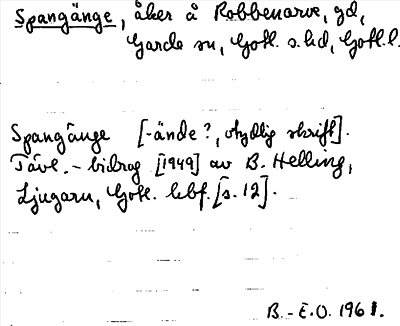 Spangänge, åker å Robbenarve, gd,
Garde sn, Gotl. s. hd, Gotl. l.
Spangänge [-ände?, otydlig skrift].
Tävl.-bidrag [1949] av B. Helling,
Ljugarn, Gotl. hbf. [s. 12].
B.-E.O. 1961.